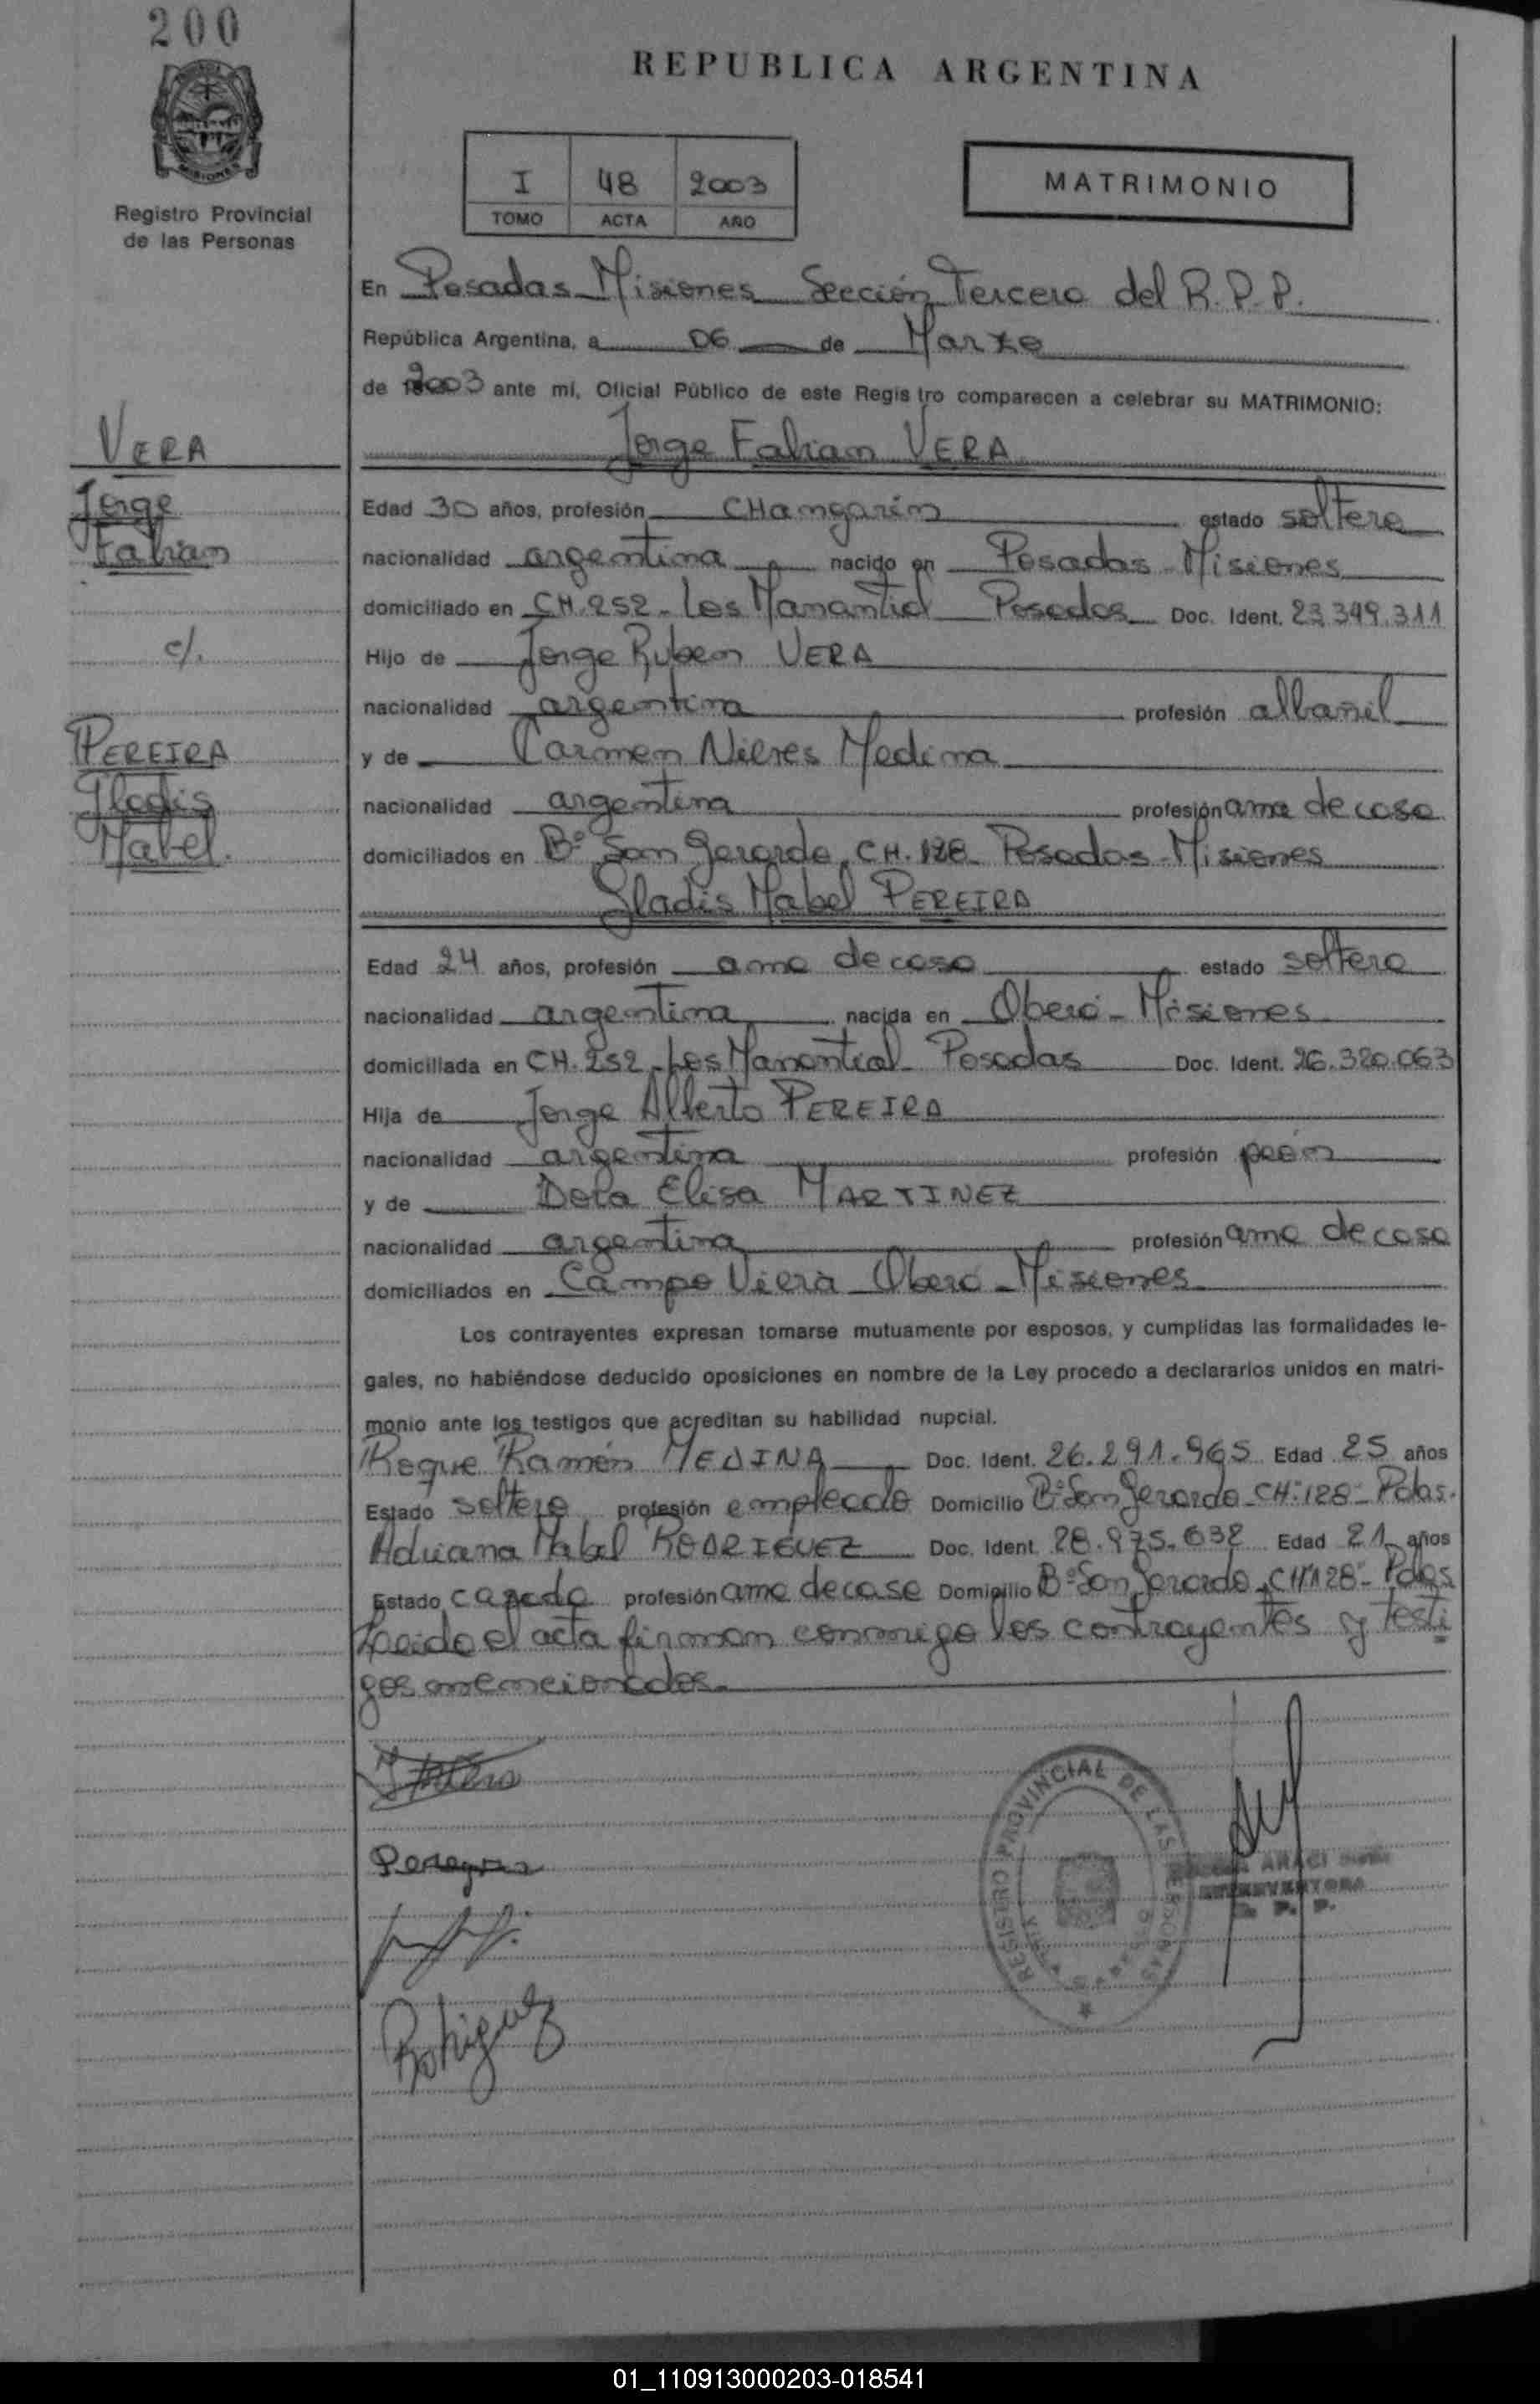 200
Registro Provincial
de las Personas
REPUBLICA ARGENTINA
I 48 2003
TOMO ACTA AÑO
MATRIMONIO
En Posadas Misiones Sección Tercera del R.P.P.
República Argentina, a 06 de Marzo
de 2003 ante mí, Oficial Público de este Registro comparecen a celebrar su MATRIMONIO:
VERA
Jorge Fabian VERA
Jorge
Edad 30 años, profesión CHangarín estado soltero
Fabian
nacionalidad argentina nacido en Posadas - Misiones
domiciliado en CH. 252 - Los Manantial Posadas Doc. Ident. 23.349.311
c/.
Hijo de Jorge Ruben VERA
nacionalidad argentina profesión albañil
PEREIRA
y de Carmen Nieves Medina
Gladis
nacionalidad argentina profesión ama de casa
Mabel.
domiciliados en Bº San Gerardo, CH. 128 - Posadas - Misiones
Gladis Mabel PEREIRA
Edad 24 años, profesión ama de casa estado soltera
nacionalidad argentina nacida en Oberá - Misiones
domiciliada en CH. 252 - Los Manantial - Posadas Doc. Ident. 26.380.063
Hija de Jorge Alberto PEREIRA
nacionalidad argentina profesión peón
y de Elisa MARTINEZ
nacionalidad argentina profesión ama de casa
domiciliados en Campo Viera Oberá - Misiones
Los contrayentes expresan tomarse mutuamente por esposos, y cumplidas las formalidades le-
gales, no habiéndose deducido oposiciones en nombre de la Ley procedo a declararlos unidos en matri-
monio ante los testigos que acreditan su habilidad nupcial.
Roque Ramón MEDINA Doc. Ident. 26.291.965 Edad 25 años
Estado soltero profesión empleado Domicilio Bº San Gerardo - CH: 128 - Pdas.
Adriana Mabel RODRIGUEZ Doc. Ident. 28.975.632 Edad 21 años
Estado casada profesión ama de casa Domicilio Bº San Gerardo - CH 128 - Pdas
Leido el acta firman conmigo los contrayentes y testi
gos mencionados.
REGISTRO PROVINCIAL DE LAS PERSONAS
ARACI
INTERVENTORA
R. P. P.
01_110913000203-018541